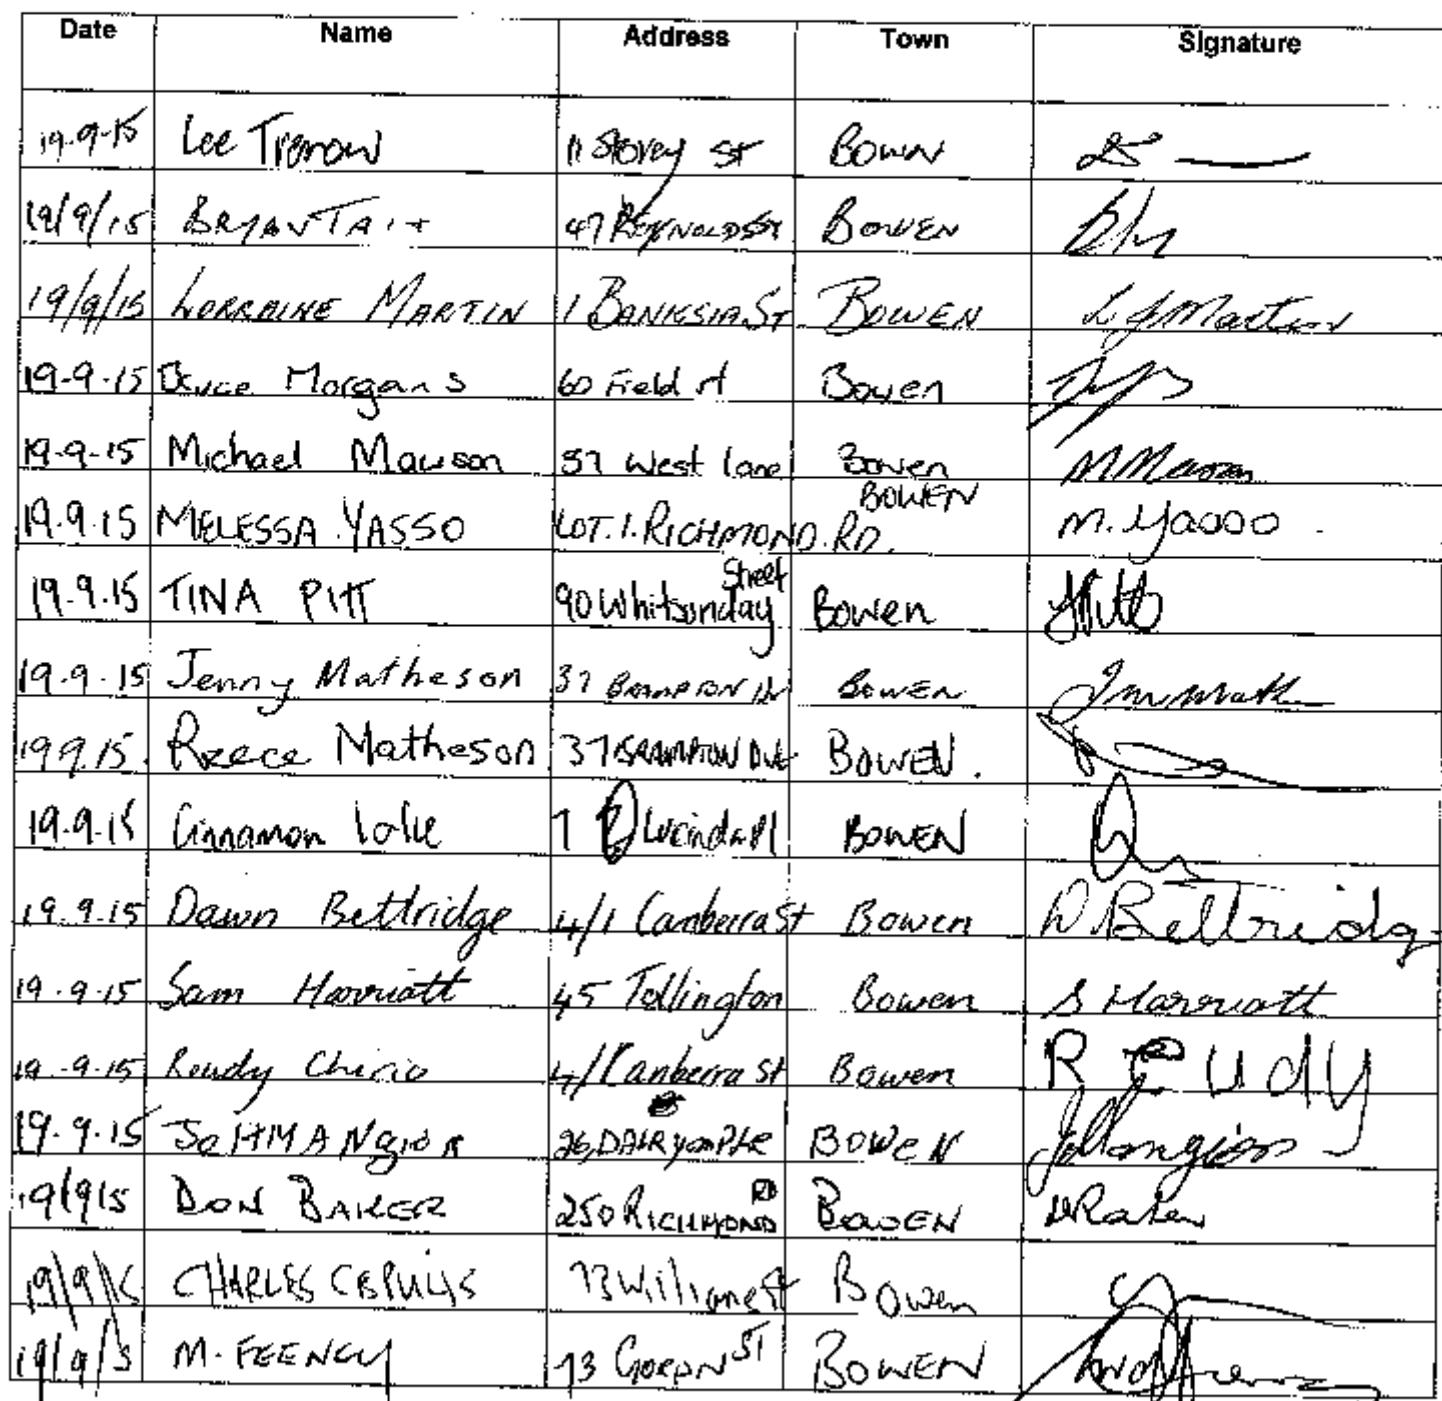 Date Name Address Town Signature
19.9.15 Lee 11 Storey St Bowen
19/9/15 BRYAN TAIT 47 REYNOLDS ST BOWEN
19/9/15 LORRAINE MARTIN 1 BANKSIA ST BOWEN L J Martin
19-9-15 Morgans 60 Field st Bowen
19-9-15 Michael Mawson 37 West lane Bowen M Mawson
19.9.15 MELESSA YASSO LOT.1.RICHMOND.RD. BOWEN M. Yasso
19.9.15 TINA PITT 90 Whitsunday Street Bowen
19.9.15 Jenny Matheson 37 BRAMPTON BOWEN
19.9.15. Reece Matheson 37 BRAMPTON AVE BOWEN.
19.9.15 Cinnamon 7 Lucinda Pl BOWEN
19.9.15 Dawn Bettridge 4/1 Canberra St Bowen D. Bettridge
19.9.15 Sam Harriott 45 Tollington Bowen S Harriott
19.9.15 4/1 Canberra St Bowen
19.9.15 26, DALRYMPLE BOWEN
19/9/15 DON BAKER 250 RICHMOND RD BOWEN D Baker
19/9/15 CHARLES 73 William St Bowen
19/9/15 M. FEENEY 73 GORDN ST BOWEN